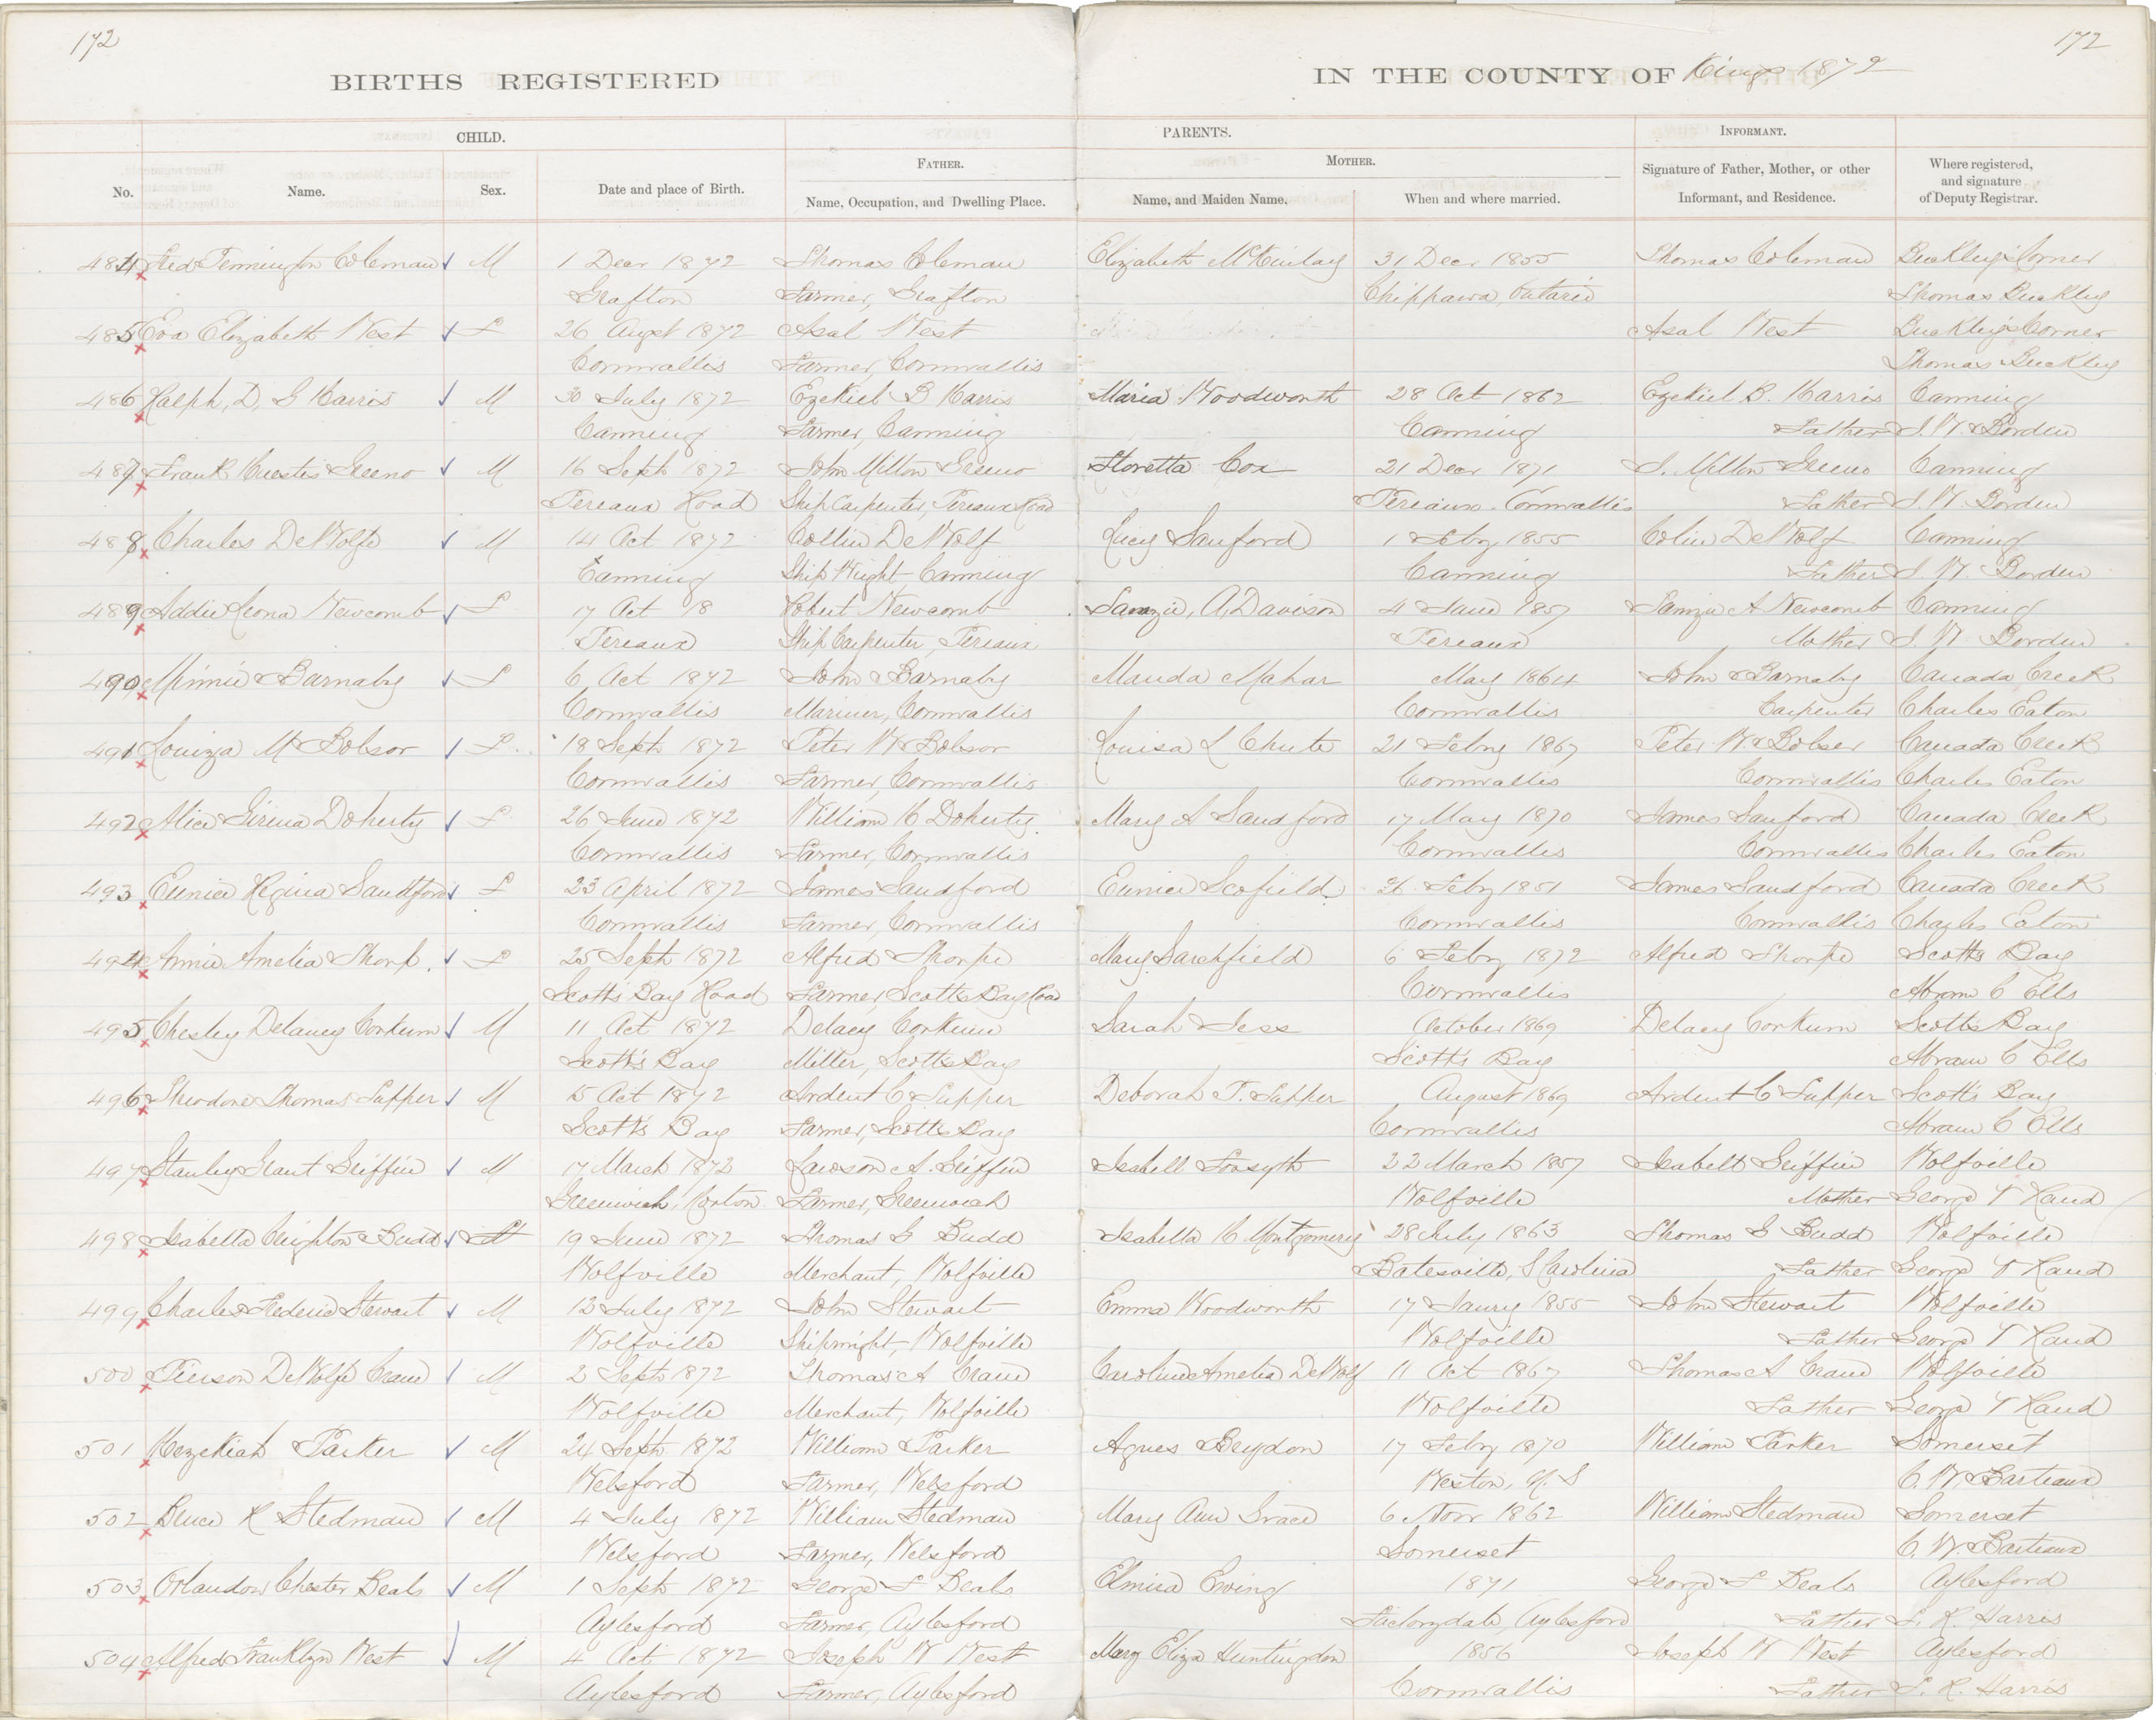 172
172
BIRTHS REGISTERED
IN THE COUNTY OF Kings 1872
CHILD.
PARENTS.
INFORMANT.
No.
Name.
Sex.
Date and place of Birth.
FATHER.
Name, Occupation, and Dwelling Place.
MOTHER.
Name, and Maiden Name.
When and where married.
Signature of Father, Mother, or other
Informant, and Residence.
Where registered,
and signature
of Deputy Registrar.
484 Fred Pennington Coleman M 1 Decr 1872 Thomas Coleman Elizabeth McKinlay 31 Decr 1855 Thomas Coleman Buckleys Corner
Grafton Farmer, Grafton Chippawa, Ontario Thomas Buckley
485 Eva Elizabeth West F 26 Augst 1872 Asal West Asal West Buckleys Corner
Cornwallis Farmer, Cornwallis Thomas Buckley
486 Ralph, D, G Harris M 30 July 1872 Ezekiel B Harris Maria Woodworth 28 Oct 1862 Ezekiel B. Harris Canning
Canning Farmer, Canning Canning Father J. W. Borden
487 Frank Huestis Greeno M 16 Sept 1872 John Milton Greeno Floretta Cox 21 Decr 1871 J. Milton Greeno Canning
Pereaux Road Ship Carpenter, Pereaux Road Pereaux. Cornwallis Father J. W Borden
488 Charles DeWolfe M 14 Oct 1872 Collin DeWolf Lucy Sanford 1 Feby 1855 Colin DeWolf Canning
Canning Ship Wright Canning Canning Father J. W. Borden
489 Addie Leona Newcomb F 17 Oct 18 Robert Newcomb A, Davison 4 June 1857 A Newcomb Canning
Pereaux Ship Carpenter, Pereaux Pereaux Mother J. W. Borden
490 Minnie Barnaby F 6 Oct 1872 John Barnaby Manda Mahar May 1864 John Barnaby Canada Creek
Cornwallis Mariner, Cornwallis Cornwallis Carpenter Charles Eaton
491 Louiza M Bobsor F 18 Sept 1872 Peter W Bobsor Louisa L Chute 21 Feby 1867 Peter W. Bobser Canada Creek
Cornwallis Farmer, Cornwallis Cornwallis Cornwallis Charles Eaton
492 Alice Doherty F 26 June 1872 William H Doherty Mary A Sandford 17 May 1870 James Sanford Canada Creek
Cornwallis Farmer, Cornwallis Cornwallis Cornwallis Charles Eaton
493 Eunice Regina Sandford F 23 April 1872 James Sandford Eunice Scofield Feby 1851 James Sandford Canada Creek
Cornwallis Farmer, Cornwallis Cornwallis Cornwallis Charles Eaton
494 Annie Amelia Thorp. F 25 Sept 1872 Alfred Thorpe Mary Sarchfield 6 Feby 1872 Alfred Thorpe Scotts Bay
Scotts Bay Road Farmer, Scotts Bay Road Cornwallis Abram C Ells
495 Chesley Delancy Corkum M 11 Oct 1872 Delacy Corkum Sarah Jess October 1869 Delacy Corkum Scotts Bay
Scotts Bay Miller, Scotts Bay Scotts Bay Abram C Ells
496 Theodore Thomas Tupper M 15 Oct 1872 Ardent C Tupper Deborah T. Tupper August 1869 Ardent C Tupper Scotts Bay
Scotts Bay Farmer, Scotts Bay Cornwallis Abram C Ells
497 Stanley Grant Griffin M 17 March 1872 Lawson A. Griffin Isabell Forsyth 22 March 1857 Isabell Griffin Wolfville
Greenwich, Horton Farmer, Greenwich Wolfville Mother George V Rand
498 Isabella Creighton Budd F 19 June 1872 Thomas G Budd Isabella H Montgomery 28 July 1863 Thomas G Budd Wolfville
Wolfville Merchant, Wolfville Batesville, S Carolina Father George V Rand
499 Charles Frederic Stewart M 12 July 1872 John Stewart Emma Woodworth 17 Janry 1855 John Stewart Wolfville
Wolfville Shipwright, Wolfville Wolfville Father George V Rand
500 Pierson DeWolfe Crane M 2 Sept 1872 Thomas A Crane Caroline Amelia DeWolf 11 Oct 1867 Thomas A Crane Wolfville
Wolfville Merchant, Wolfville Wolfville Father George V Rand
501 Hezekiah Parker M 24 Sept 1872 William Parker Agnes Beydon 17 Feby 1870 William Parker Somerset
Welsford Farmer, Welsford Weston, N. S C. W. Barteaux
502 Bruce R Stedman M 4 July 1872 William Stedman Mary Ann Grace 6 Novr 1862 William Stedman Somerset
Welsford Farmer, Welsford Somerset C. W. Barteaux
503 Orlandow Chester Beals M 1 Sept 1872 George F Beals Elmira Ewing 1871 George F Beals Aylesford
Aylesford Farmer, Aylesford Factorydale, Aylesford Father L. R. Harris
504 Alfred Franklyn West M 4 Oct 1872 Joseph W West Mary Eliza Huntingdon 1856 Joseph W West Aylesford
Aylesford Farmer, Aylesford Cornwallis Father L. R. Harris